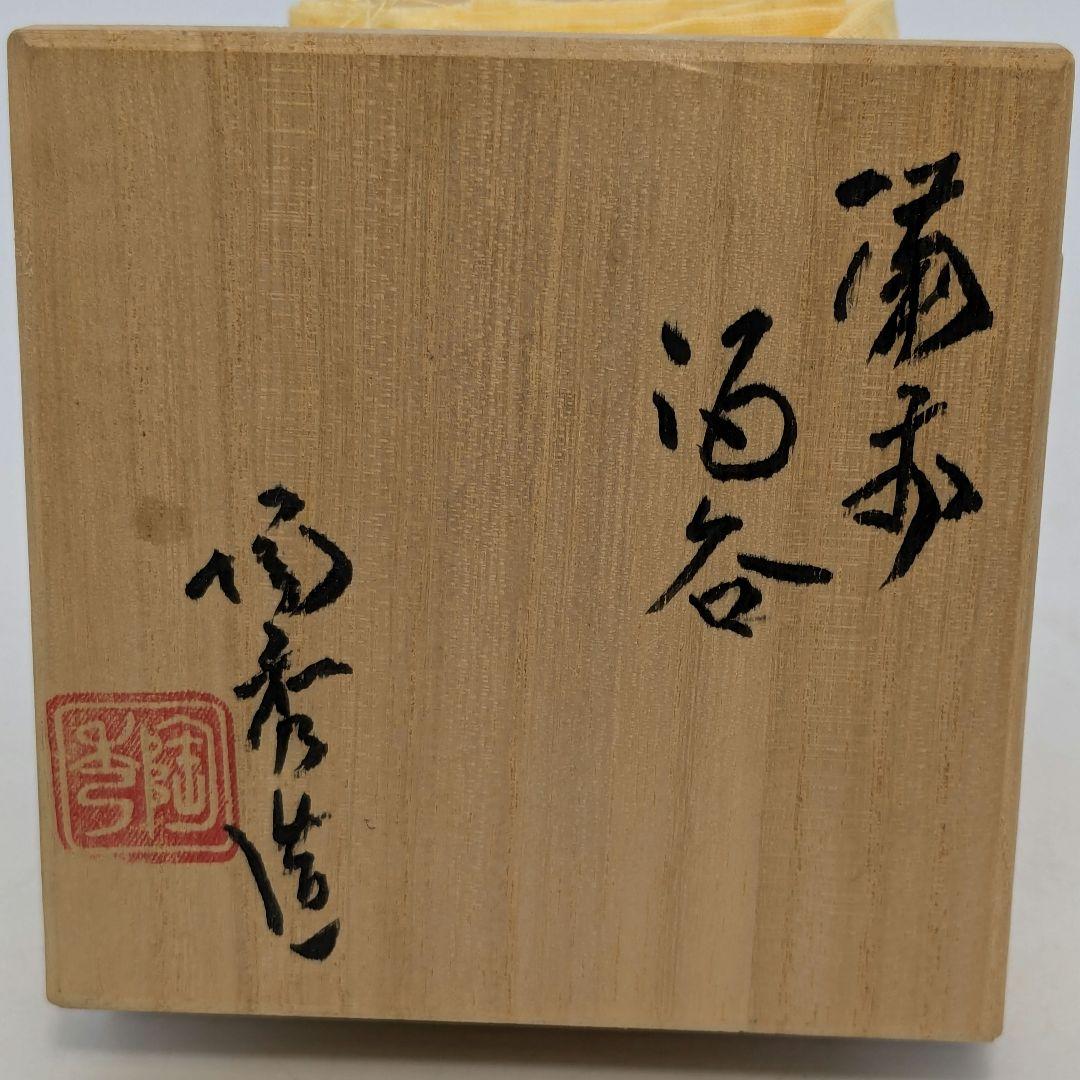 備前
酒呑
陶秀造
陶秀